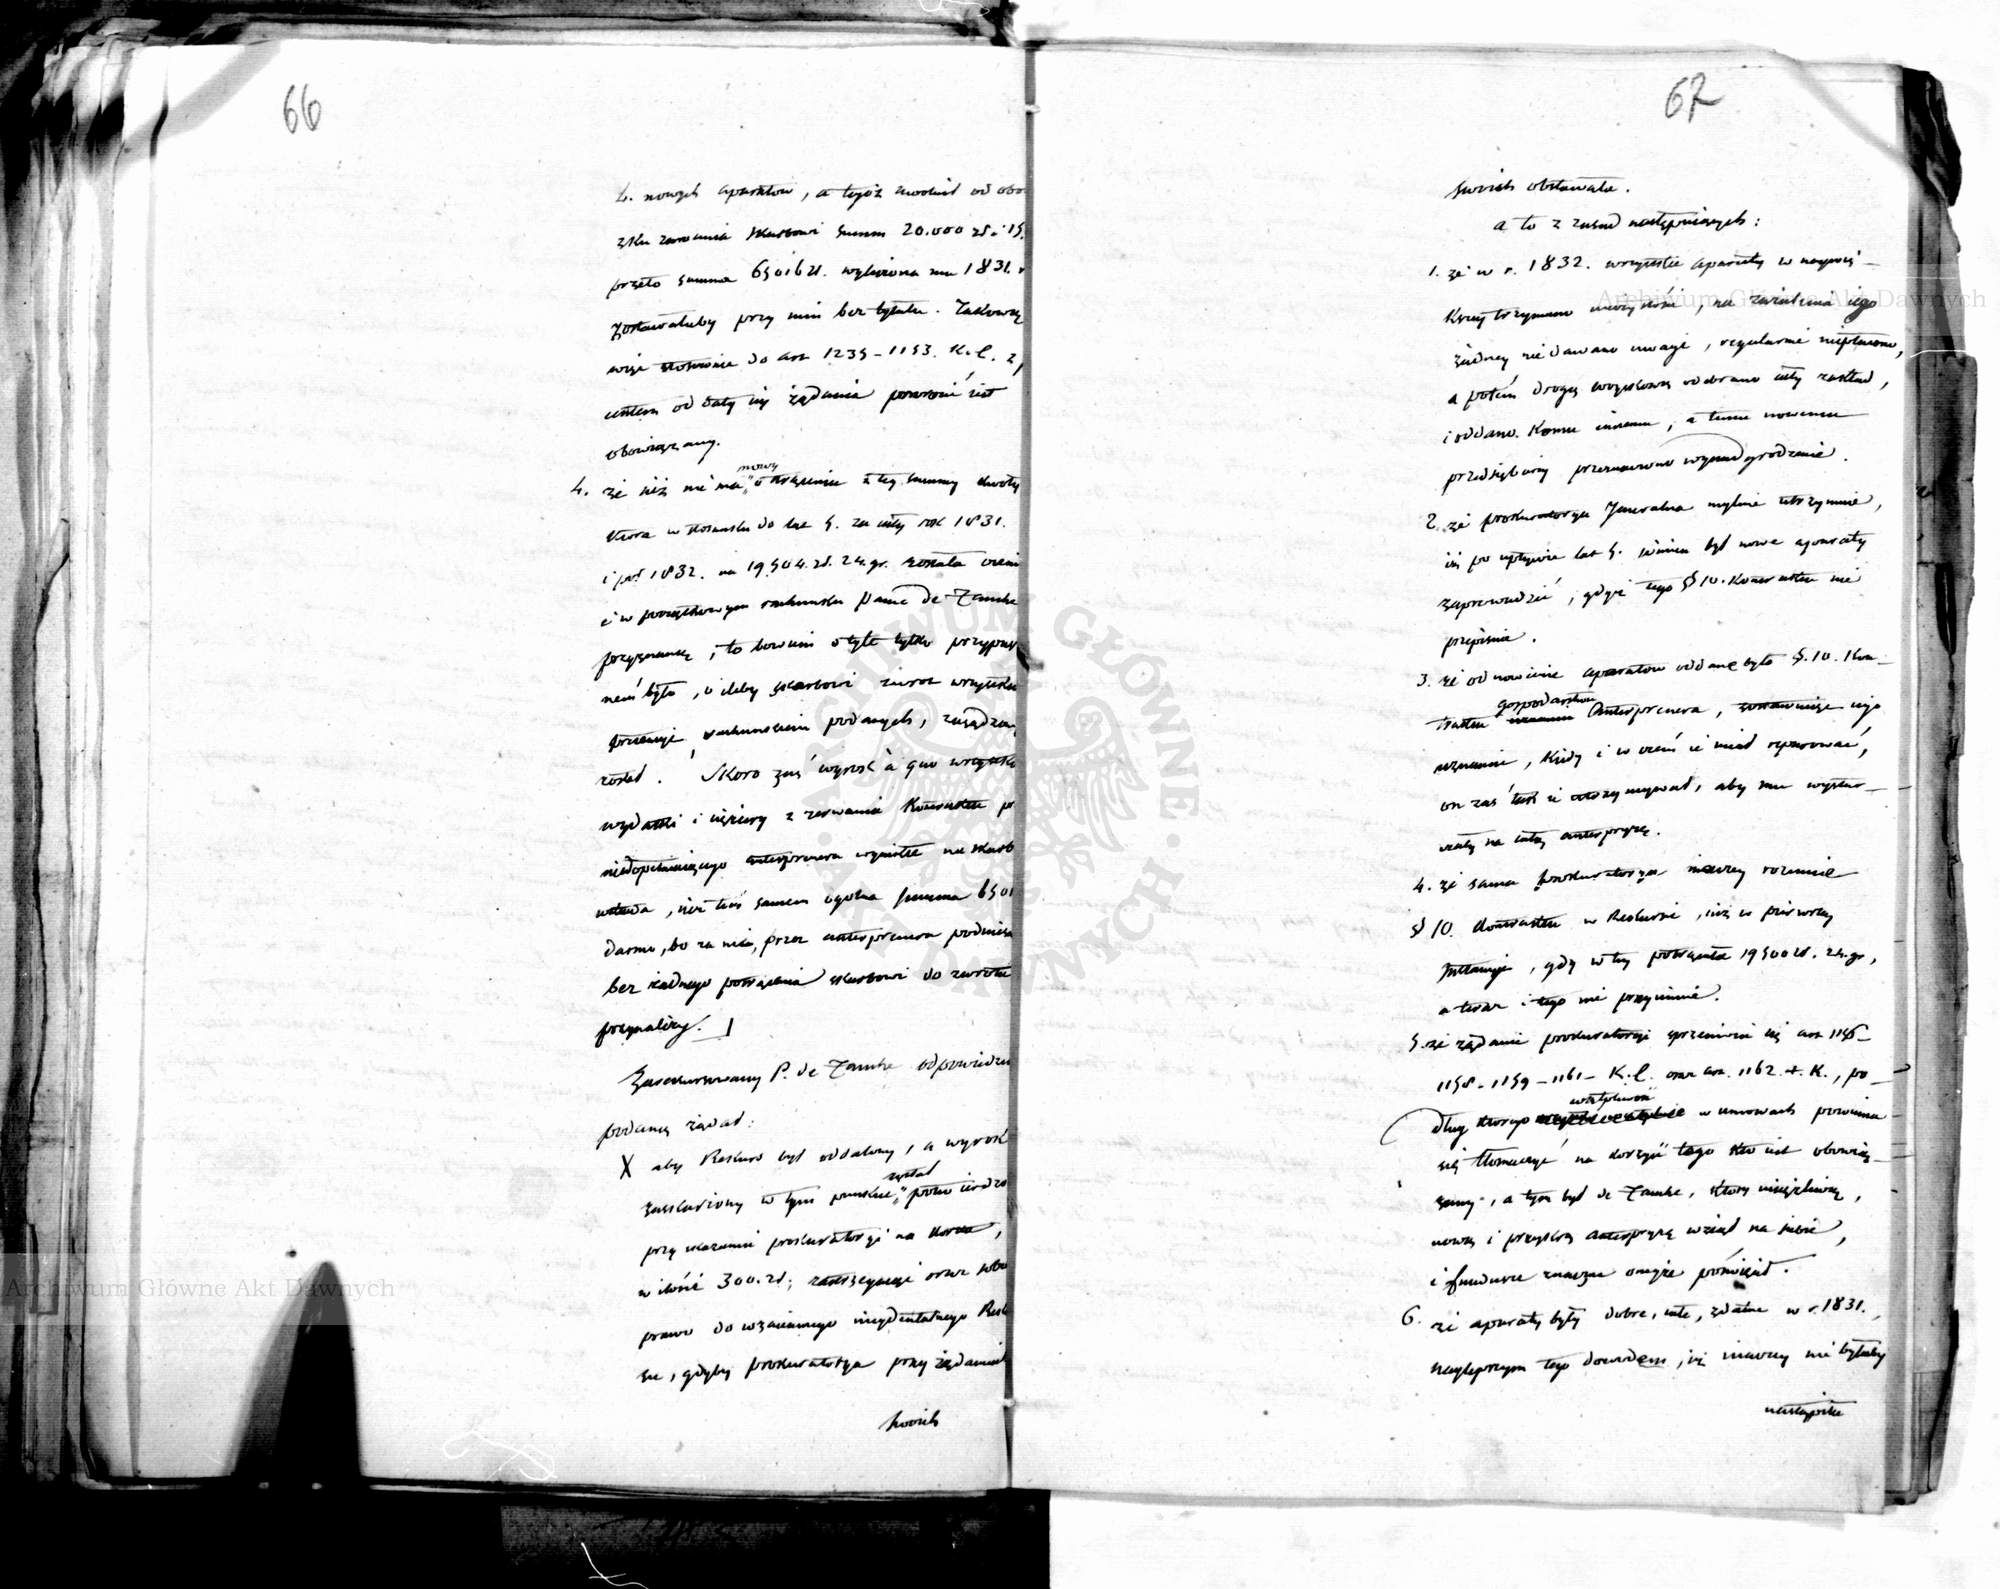 66
4. nowych aparatów, a tegoż uwolnił od obo
zku zwrócenia skarbowi summ 20.000 zł. i 15.
przeto summa 65016 zł. wyliczona mu 1831. r
zostawałaby przy nim bez tytułu. Takową
więc stosownie do art 1235 - 1153. K. C. z
centem od daty iey żądania powrócić iest
obowiązany.
4. że iuż nie ma nowy o strąceniu z tey summy kwoty
która w stosunku do lat 5. za cały rok 1831.
i poł 1832. na 19.504. zł. 24. gr. została
i w początkowym rachunku Pana de Zamke
przyznaną, to bowiem o tyle tylko
nem było, o ileby skarbowi zwrot wszystkich
pretensyi rachunkiem podanych, zasądzony
został. Skoro zaś wyrok à quo wszystkie
wydatki i ciężary z zerwania Kontraktu
niedopełniaiącego anteprenera wynikłe na skarb
wkłada, iuż tém samem ogólna summa 6501
darmo, bo za nic, przez anteprenera podniesiona
bez żadnego potrącenia skarbowi do zwrotu
przynależy.
Zaskarżony P. de Zamke odpowiedzią
podaną żądał:
X aby Rekurs był oddalony, a wyrok
zaskarżony w tym punkcie został potwierdzo
przy skazaniu prokuratoryi na koszta,
w ilości 300. zł; zastrzegaiąc oraz sobie
prawo do wzaiemnego incydentalnego Reku
su, gdyby prokuratorya przy żądaniach
swoich
67
swoich obstawała.
a to z zasad następuiących:
1. że w r. 1832. wszystkie aparaty w naywię-
kszey trzymano nieczystości, na zwiedzenia iego
żadney nie dawano uwagi, regularnie niepłacono,
a potém drogą exekucyi odebrano cały zakład,
i oddano komu innemu, a temu nowemu
przedsiębiorcy przeznaczono wynadgrodzenie.
2. że prokuratorya Jeneralna mylnie utrzymuie,
iż po upływie lat 5. winien był nowe aparaty
zaprowadzić, gdyż tego § 10. Kontraktu nie
przepisuie.
3. że odnowienie aparatów oddane było §. 10. Kon-
traktu gospodarstwu Anteprenera, zostawuiąc iego
uznaniu, kiedy i w czém ie miał reparować,
on zaś tak ie utrzymywał, aby mu wystar-
czały na całą anteprizę.
4. że sama prokuratorya inaczey rozumie
§ 10. Kontraktu w Rekursie, niż w pierwszey
Instancyi, gdy w tey potrącała 19500 zł. 24. gr,
a teraz i tego nie przyimuie.
5. że żądanie prokuratoryi sprzeciwia się art 1156-
1158 - 1159 - 1161 - K. C. oraz art. 1162. t. K., po-
dług którego wątpliwość w umowach powinna
się tłomaczyć na korzyść tego kto iest obowią-
zany, a tym był de Zamke, który uciążliwą,
nową i przykrą anteprizę wziął na siebie,
i fundusze znaczne onéyże poświęcił.
6. że aparaty były dobre, całe, zdatne w r. 1831.,
naylepszym tego dowodem, iż inaczey nie byłaby
nastąpiła
Archiwum Główne Akt Dawnych
Archiwum Główne Akt Dawnych
ARCHIWUM GŁÓWNE AKT DAWNYCH